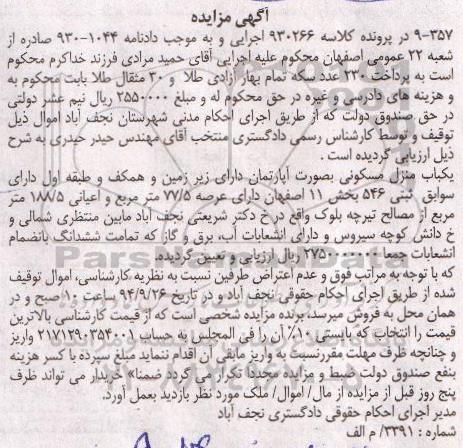 آگهی مزایده
۹-۳۵۷ در پرونده کلاسه ۹۳۰۲۶۶ اجرایی و به موجب دادنامه ۱۰۴۴-۹۳۰ صادره از
شعبه ۲۲ عمومی اصفهان محکوم علیه اجرایی آقای حمید مرادی فرزند خداکرم محکوم
است به پرداخت ۲۳۰ عدد سکه تمام بهار آزادی طلا و ۳۰ مثقال طلا بابت محکوم به
و هزینه های دادرسی و غیره در حق محکوم له و مبلغ ۳۵۵۰۰۰۰ ریال نیم عشر دولتی
در حق صندوق دولت که از طریق اجرای احکام مدنی شهرستان نجف آباد اموال ذیل
توقیف و توسط کارشناس رسمی دادگستری منتخب آقای مهندس حیدر حیدری به شرح
ذیل ارزیابی گردیده است .
یکباب منزل مسکونی بصورت آپارتمان دارای زیر زمین و همکف و طبقه اول دارای
سوابق ثبتی ۵۴۶ بخش ۱۱ اصفهان دارای عرصه ۷۷/۵ متر مربع و اعیانی ۱۸۸/۵ متر
مربع از مصالح تیرچه بلوک واقع در خ دکتر شریعتی نجف آباد مابین منتظری شمالی و
خ دانش کوچه سیروس و دارای انشعابات آب، برق و گاز که تمامت ششدانگ بانضمام
انشعابات جمعا به مبلغ ریال ارزیابی و تعیین گردیده.
که با توجه به مراتب فوق و عدم اعتراض طرفین نسبت به نظریه کارشناسی، اموال توقیف
شده از طریق اجرای احکام حقوقی نجف آباد و در تاریخ ۹۴/۹/۲۶ ساعت ۱۰ صبح و در
همان محل به فروش میرسد، برنده مزایده شخصی است که از قیمت کارشناسی بالاترین
قیمت را انتخاب که بایستی ۱۰٪ آن را فی المجلس به حساب ۲۱۷۱۳۹۰۳۵۴۰۰۱ واریز
و چنانچه ظرف مهلت مقرر نسبت به واریز مابقی آن اقدام ننماید مبلغ سپرده با کسر هزینه
بنفع صندوق دولت ضبط و مزایده مجددا تکرار می گردد ضمنا» خریدار می تواند ظرف
پنج روز قبل از مزایده از مال / اموال/ ملک مورد نظر بازدید بعمل آورد.
مدیر اجرای احکام حقوقی دادگستری نجف آباد
شماره : ۳۳۹۱/ م الف